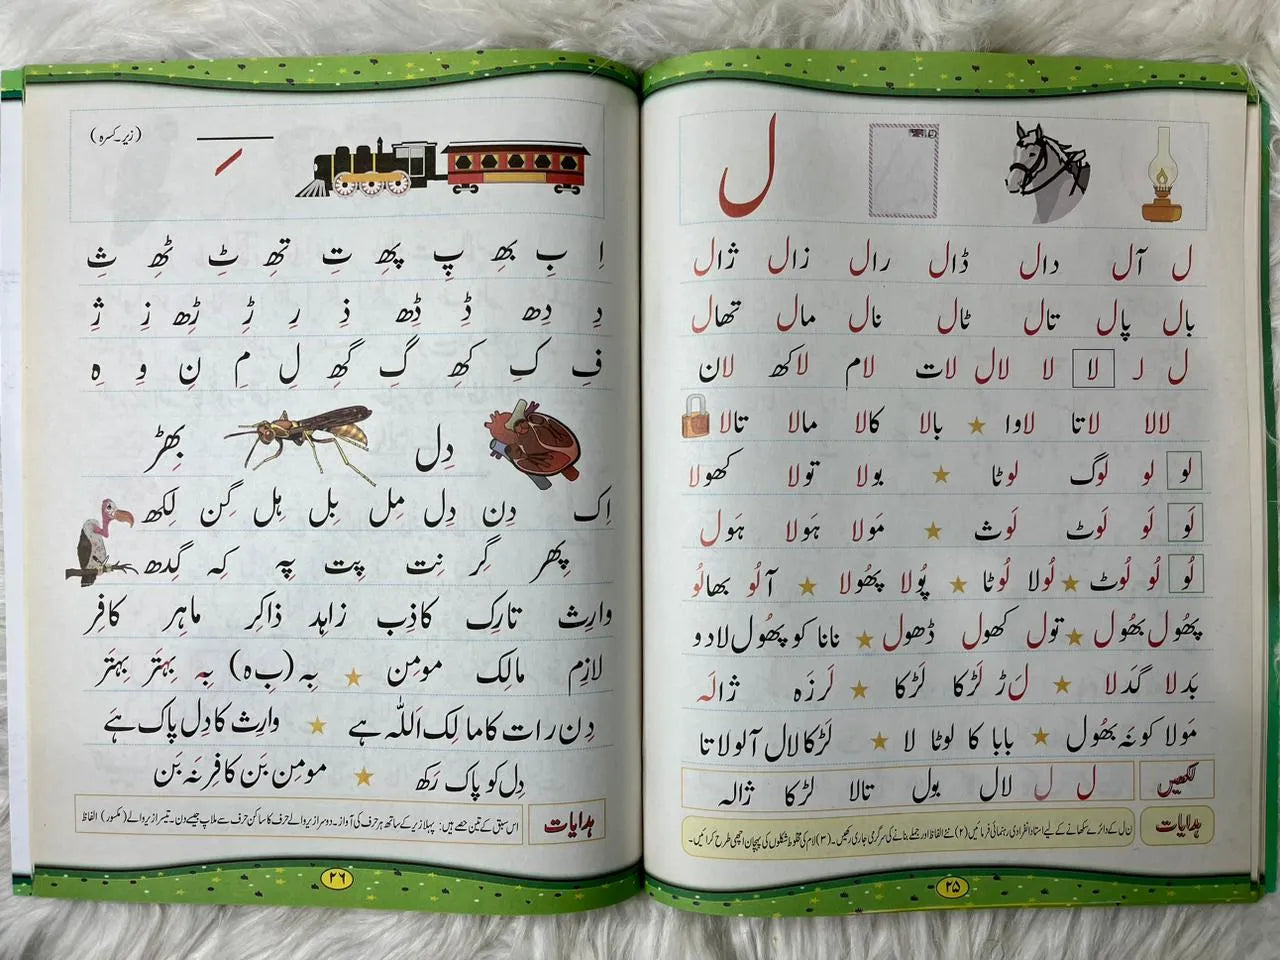 ل
ل آل دال ڈال رال زال ژال
بال پال تال ٹال نال مال تھال
ل لـ لا لا لال لات لام لاکھ لان
لالا لاتا لاوا بالا کالا مالا تالا
لو لو لوگ لوٹا بولا تولا کھولا
لَو لَو لَوٹ لَوث مَولا ہَولا ہَول
لُو لُو لُوٹ لُولا لُوٹا پُولا پھُولا آلُو بھالُو
پھُول بھُول تول کھول ڈھول نانا کو پھُول لا دو
بَدلا گدَلا لَڑ لَڑکا لَڑکا لَرزَہ ژالَہ
مَولا کو نَہ بھُول بابا کا لوٹا لا لَڑکا لال آلو لاتا
لکھیں ل ل لال بول تالا لڑکا ژالہ
ہدایات ن ل کے دائرے سکھانے کے لیے استاد انفرادی رہنمائی فرمائیں (۲) نئے الفاظ اور جملے بنانے کی سرگرمی جاری رکھیں۔ (۳) لام کی مخلوط شکلوں کی پہچان اچھی طرح کرائیں۔
۲۵
(زیر۔کسرہ)
اِ بِ بھِ پِ پھِ تِ تھِ ٹِ ٹھِ ثِ
دِ دِھ ڈِ ڈِھ ذِ رِ ڑِ ڑِھ زِ ژِ
فِ کِ کھِ گِ گھِ لِ مِ نِ وِ ہِ
دِل بھِڑ
اِک دِن دِل مِل بِل ہِل گِن لِکھ
پھِر گِر نِت پِت پِہ کِہ گِدھ
وارِث تارِک کاذِب زاہِد ذاکِر ماہِر کافِر
لازِم مالِک مومِن بِہ (بِ ہ) بِہ بِہتَر بِہتَر
دِن رات کا مالِک اَللّٰہ ہے وارِث کا دِل پاک ہَے
دِل کو پاک رَکھ مومِن بَن کافِر نَہ بَن
ہدایات اس سبق کے تین حصے ہیں: پہلا زیر کے ساتھ ہر حرف کی آواز۔ دوسرا زیر والے حرف کا ساکن حرف سے ملاپ جیسے دن۔ تیسرا زیر والے (مکسور) الفاظ
۲۶